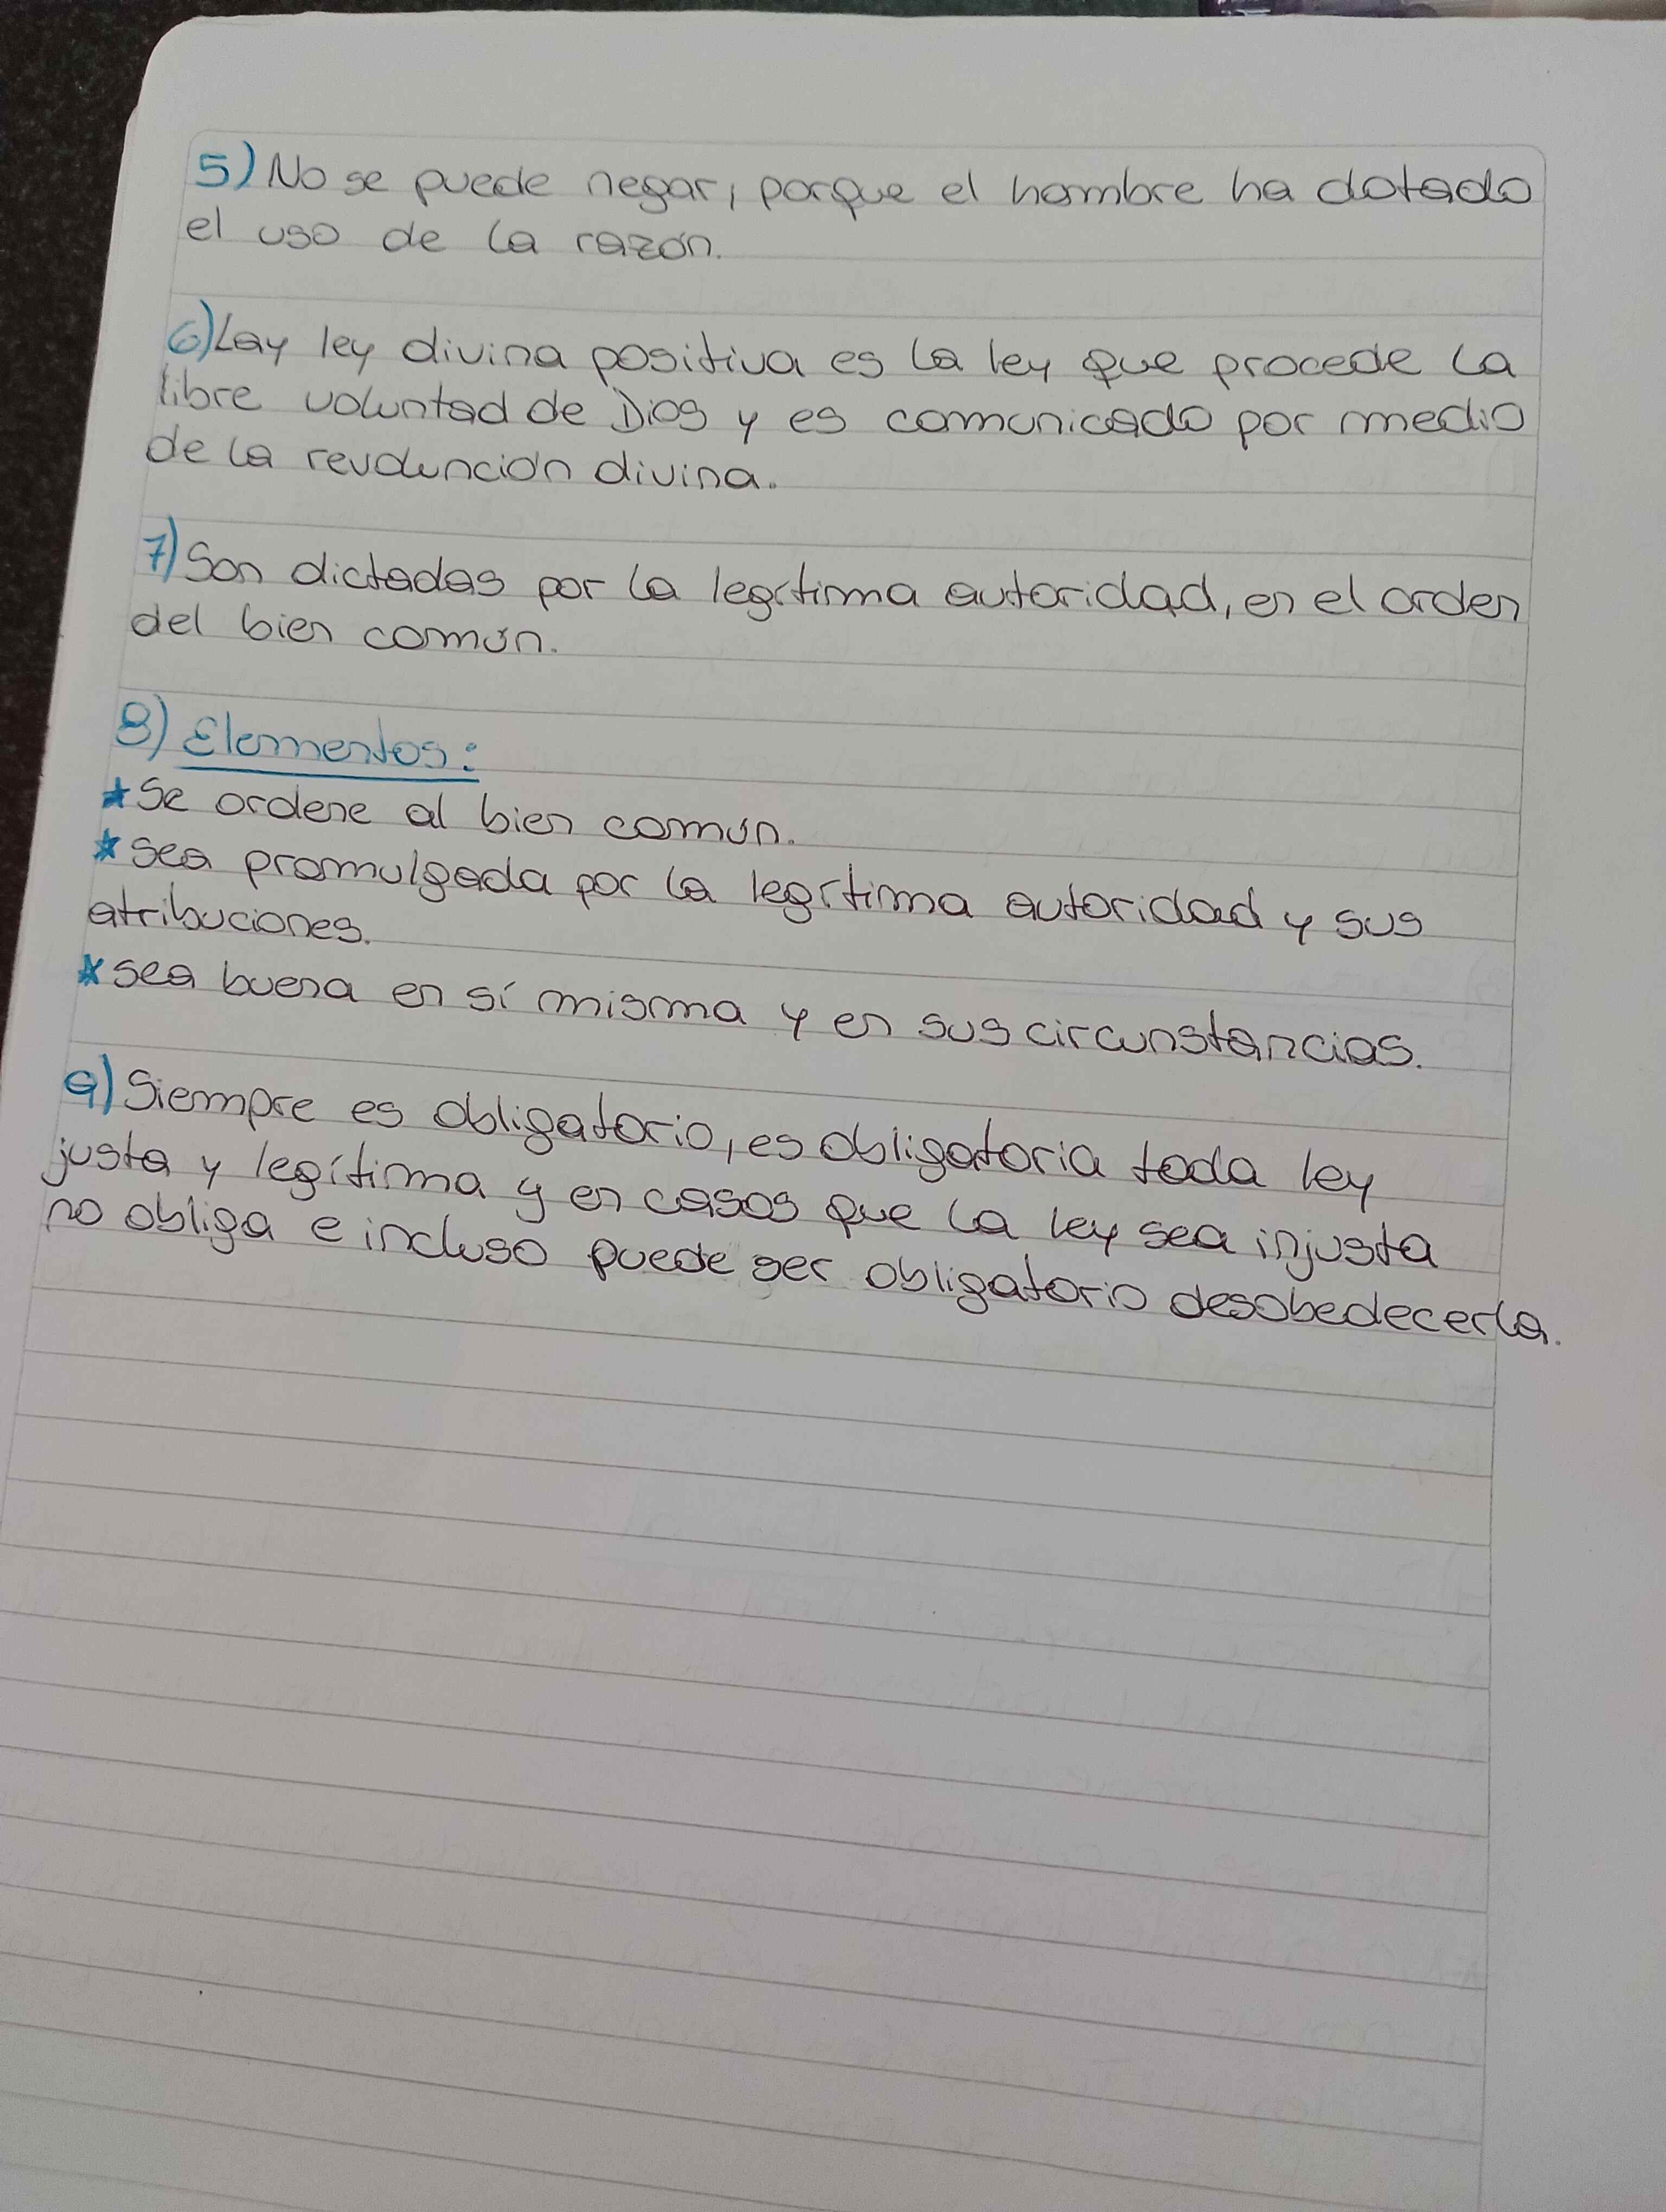 5) No se puede negar, porque el hombre ha dotado
el uso de la razón.
6) Lay ley divina positiva es la ley que procede la
libre voluntad de Dios y es comunicado por medio
de la revoluncion divina.
7) Son dictadas por la legítima autoridad, en el orden
del bien común.
8) Elementos:
★ Se ordene al bien común.
★ sea promulgada por la legítima autoridad y sus
atribuciones.
★ sea buena en sí misma y en sus circunstancias.
9) Siempre es obligatorio, es obligatoria toda ley
justa y legítima y en casos que la ley sea injusta
no obliga e incluso puede ser obligatorio desobedecerla.